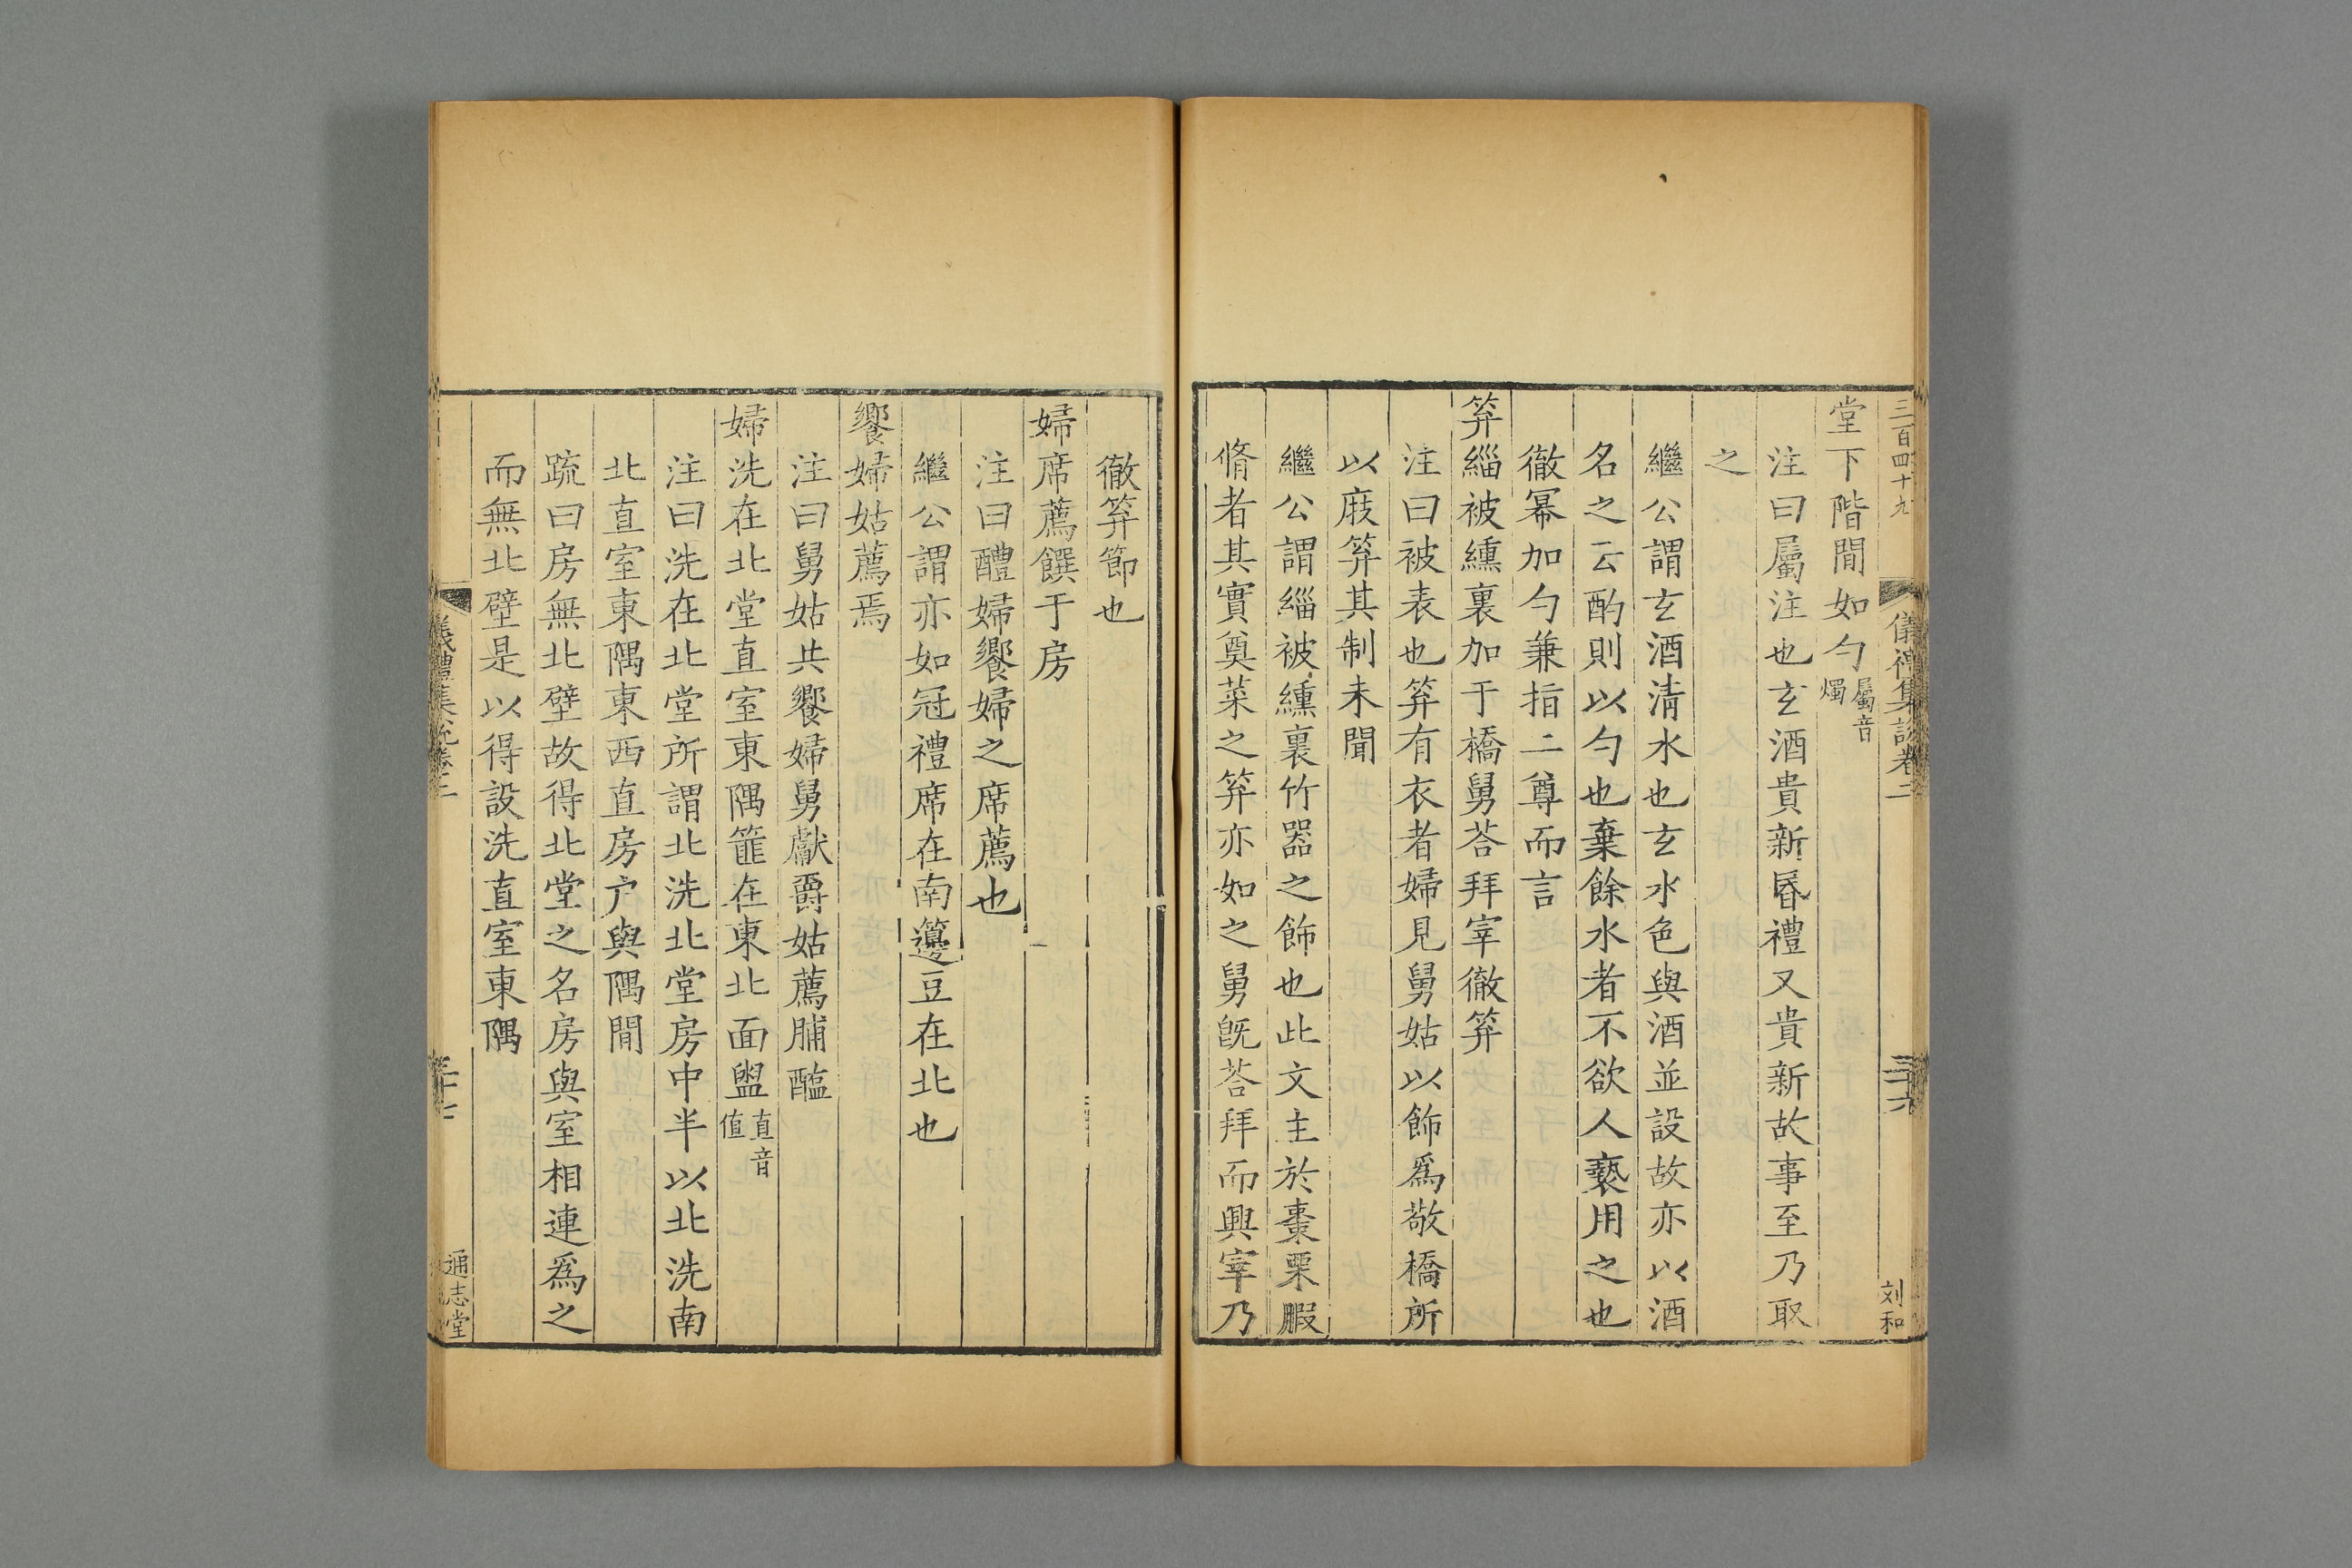 三百四十九
儀禮集說卷二
三十六
刘和
堂下階間如勺屬音燭
注曰屬注也玄酒貴新昬禮又貴新故事至乃取
之
繼公謂玄酒清水也玄水色與酒並設故亦以酒
名之云酌則以勺也棄餘水者不欲人褻用之也
徹冪加勺兼指二尊而言
笲緇被纁裏加于橋舅荅拜宰徹笲
注曰被表也笲有衣者婦見舅姑以飾爲敬橋所
以庪笲其制未聞
繼公謂緇被纁裏竹器之飾也此文主於棗栗腶
脩者其實奠菜之笲亦如之舅旣荅拜而興宰乃
徹笲節也
婦席薦饌于房
注曰醴婦饗婦之席薦也
繼公謂亦如冠禮席在南籩豆在北也
饗婦姑薦焉
注曰舅姑共饗婦舅獻爵姑薦脯醢
婦洗在北堂直室東隅篚在東北面盥直音值
注曰洗在北堂所謂北洗北堂房中半以北洗南
北直室東隅東西直房户與隅間
疏曰房無北壁故得北堂之名房與室相連爲之
而無北壁是以得設洗直室東隅
儀禮集說卷二
三十七
通志堂